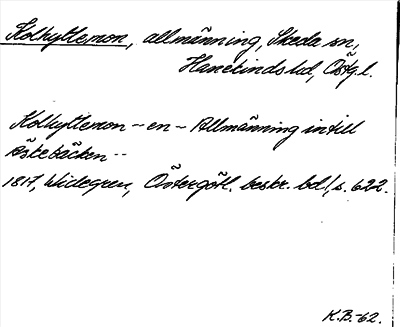 Kolhyttemon, allmänning, Skeda sn,
Hanekinds hd, Östg.l.
Kolhyttemon -- en - Allmänning intill
Röksbäcken --
1817, Widegren, Östergötl. beskr. bd 1, s. 622.
K.B.-62.